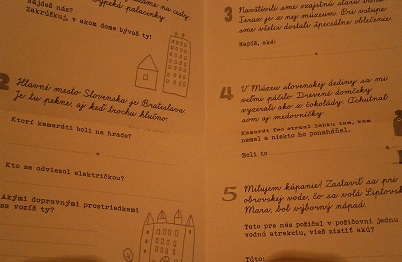 máme na cesty.
vypeká palacinky.
Nájdeš nás?
Zakrúžkuj, v akom dome bývaš ty!
2
Hlavné mesto Slovenska je Bratislava.
Je tu pekne, aj keď trochu hlučno.
Ktorí kamaráti boli na hrade?
Kto sa odviezol električkou?
Akými dopravnými prostriedkami
sa vozíš ty?
3
Navštívili sme vojnovú starú
Teraz je z nej múzeum. Pri vstupe
sme všetci dostali špeciálne oblečenie.
Napíš, aké:
4
V Múzeu slovenskej dediny sa mi
veľmi páčilo. Drevené domčeky
vyzerali ako z čokolády. Ochutnal
som aj medovníčky.
Kamarát Teo stratil lístok tam, kam
nemal a niekto ho ponaháňal.
Boli to
5
Milujem kúpanie! Zastaviť sa pri
obrovskej vode, čo sa volá Liptovská
Mara, bol výborný nápad.
Tato pre nás požičal v požičovni jednu
vodnú atrakciu, vieš zistiť akú?
Túto: